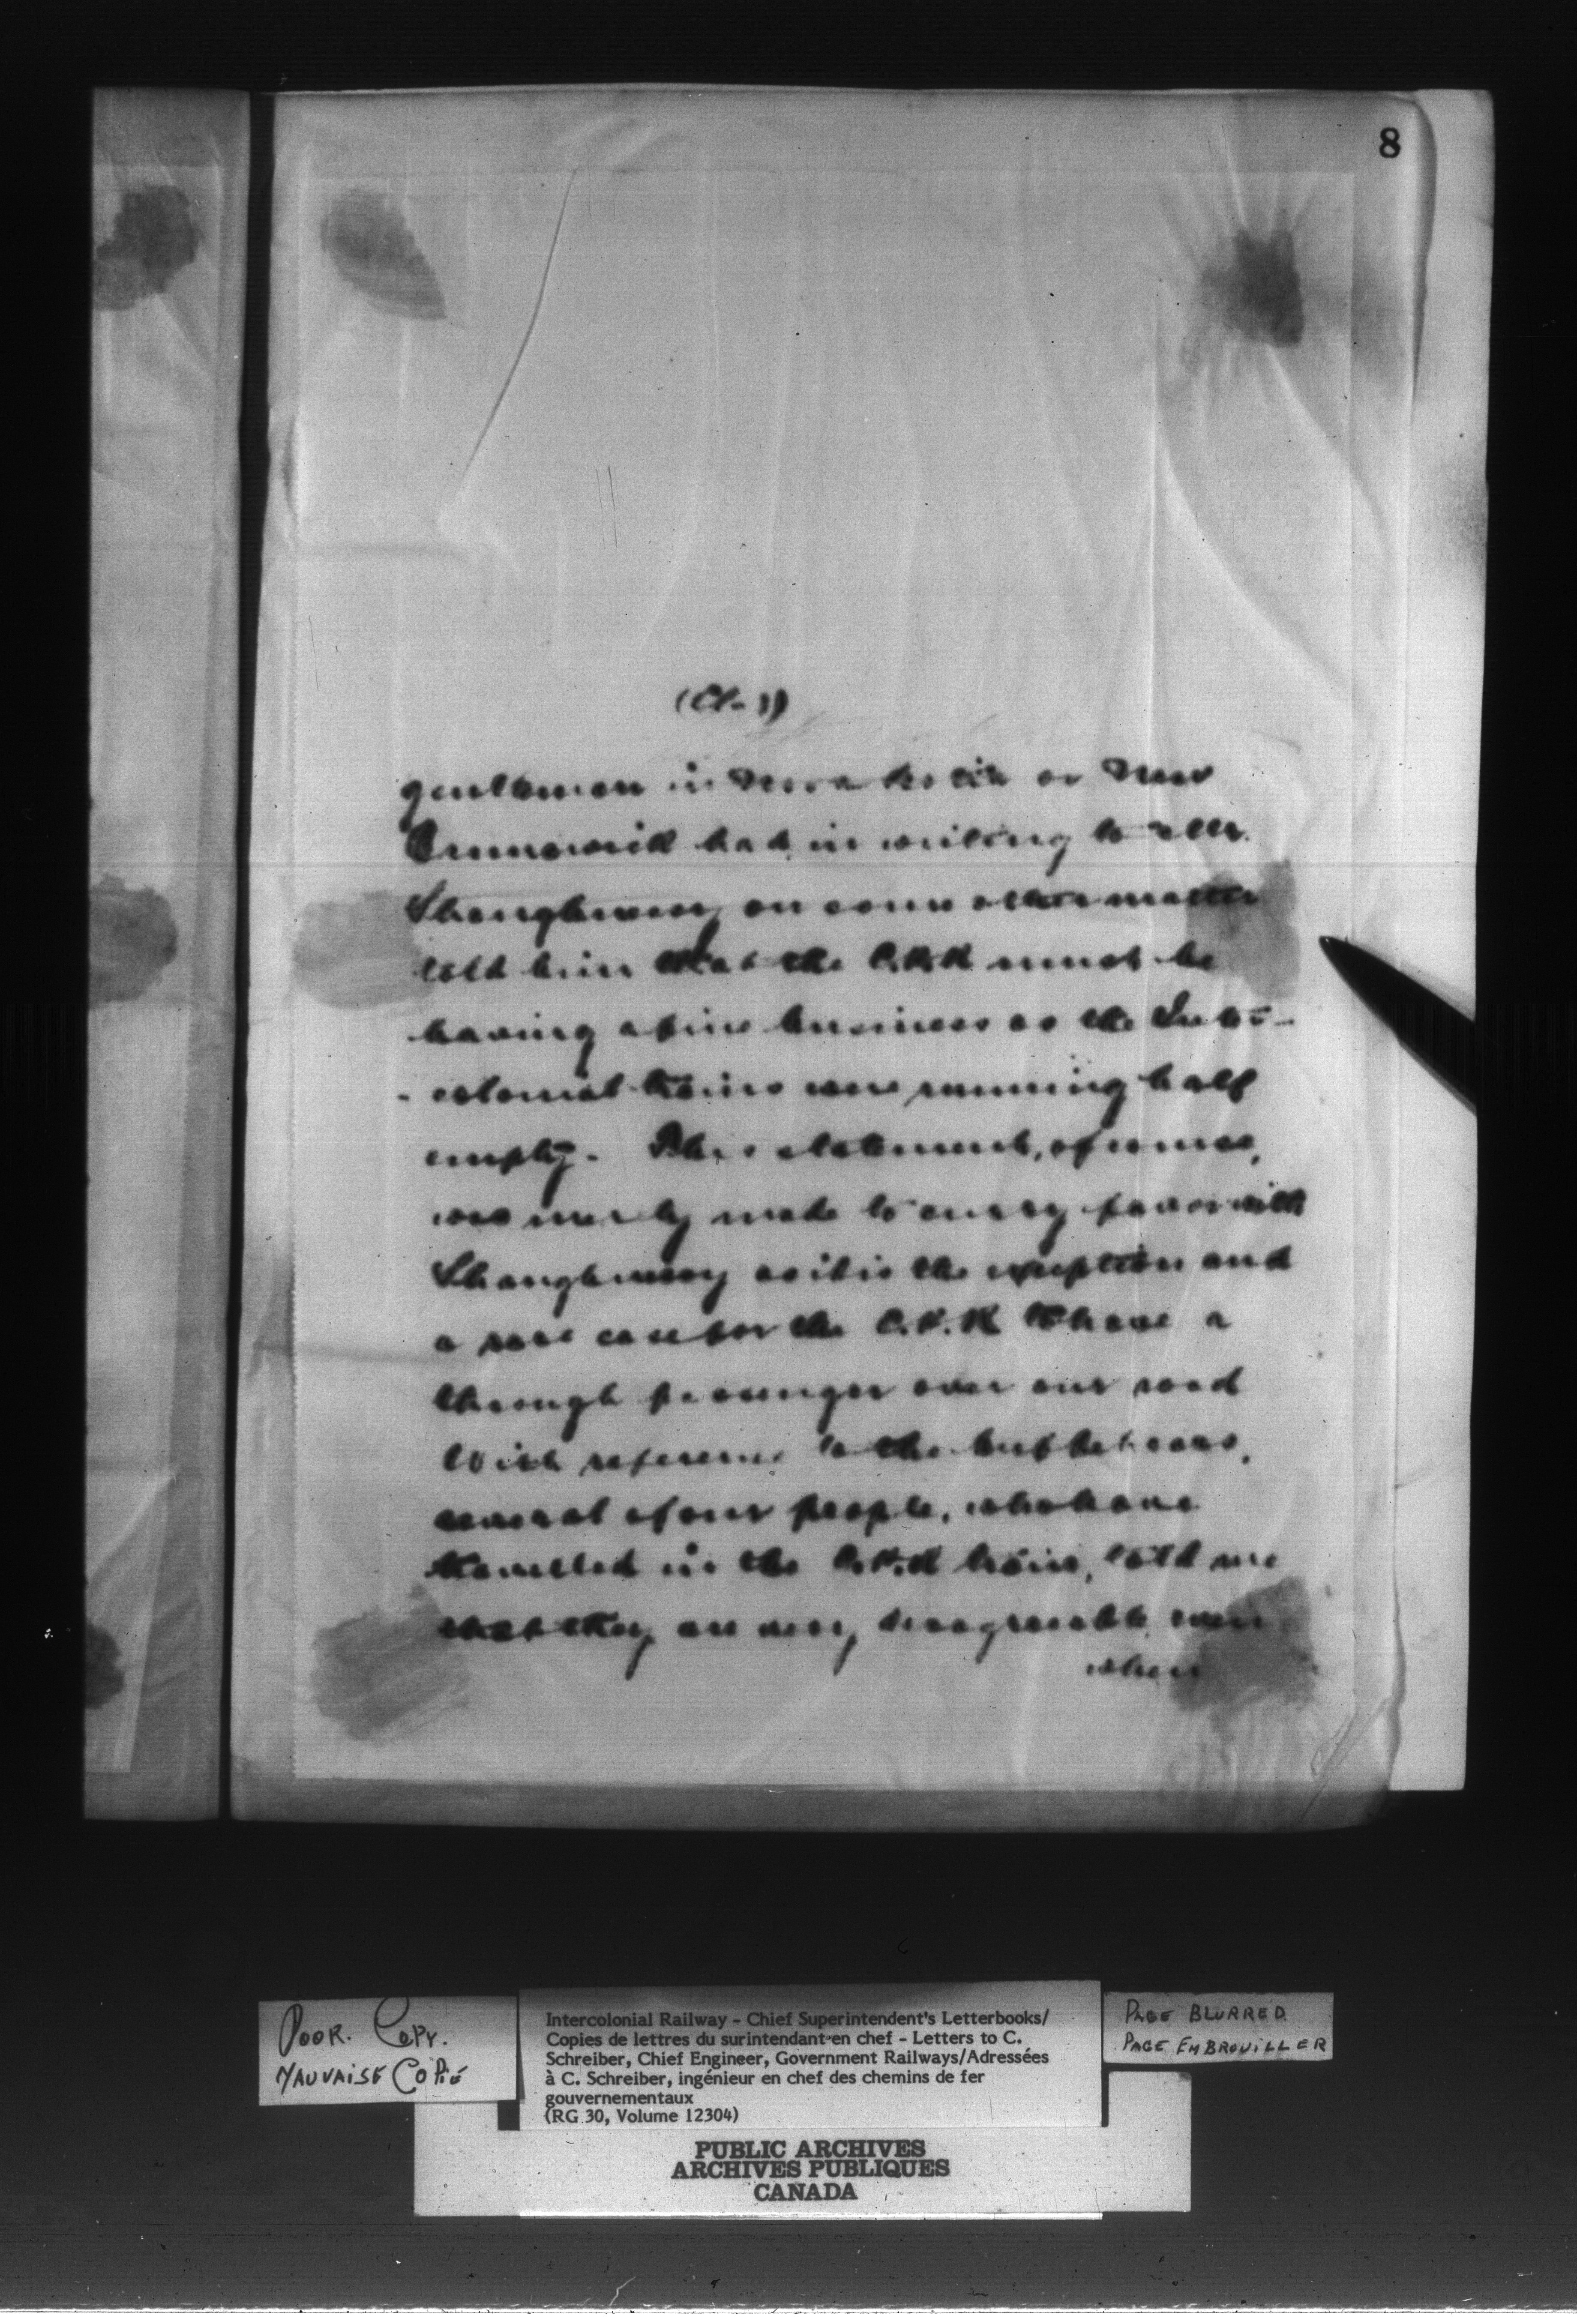 8
gentlemen in Nova Scotia or New
Brunswick had in writing to Mr.
Shaughnessy on some other matter
told him that the C.P.R. must be
having a fine business as the Inter-
-colonial trains were running half
empty. This statement, of course,
was merely made to curry favor with
Shaughnessy as it is the exception and
a rare case for the C.P.R. to have a
through passenger over our road
With reference to the buffet cars,
several of our people, who have
travelled in the C.P.R. trains, told me
that they are very disagreeable even
when
POOR. COPY.
MAUVAISE COPIE
Intercolonial Railway - Chief Superintendent's Letterbooks/
Copies de lettres du surintendant-en chef - Letters to C.
Schreiber, Chief Engineer, Government Railways/Adressées
à C. Schreiber, ingénieur en chef des chemins de fer
gouvernementaux
(RG 30, Volume 12304)
PAGE BLURRED
PAGE EMBROUILLER
PUBLIC ARCHIVES
ARCHIVES PUBLIQUES
CANADA